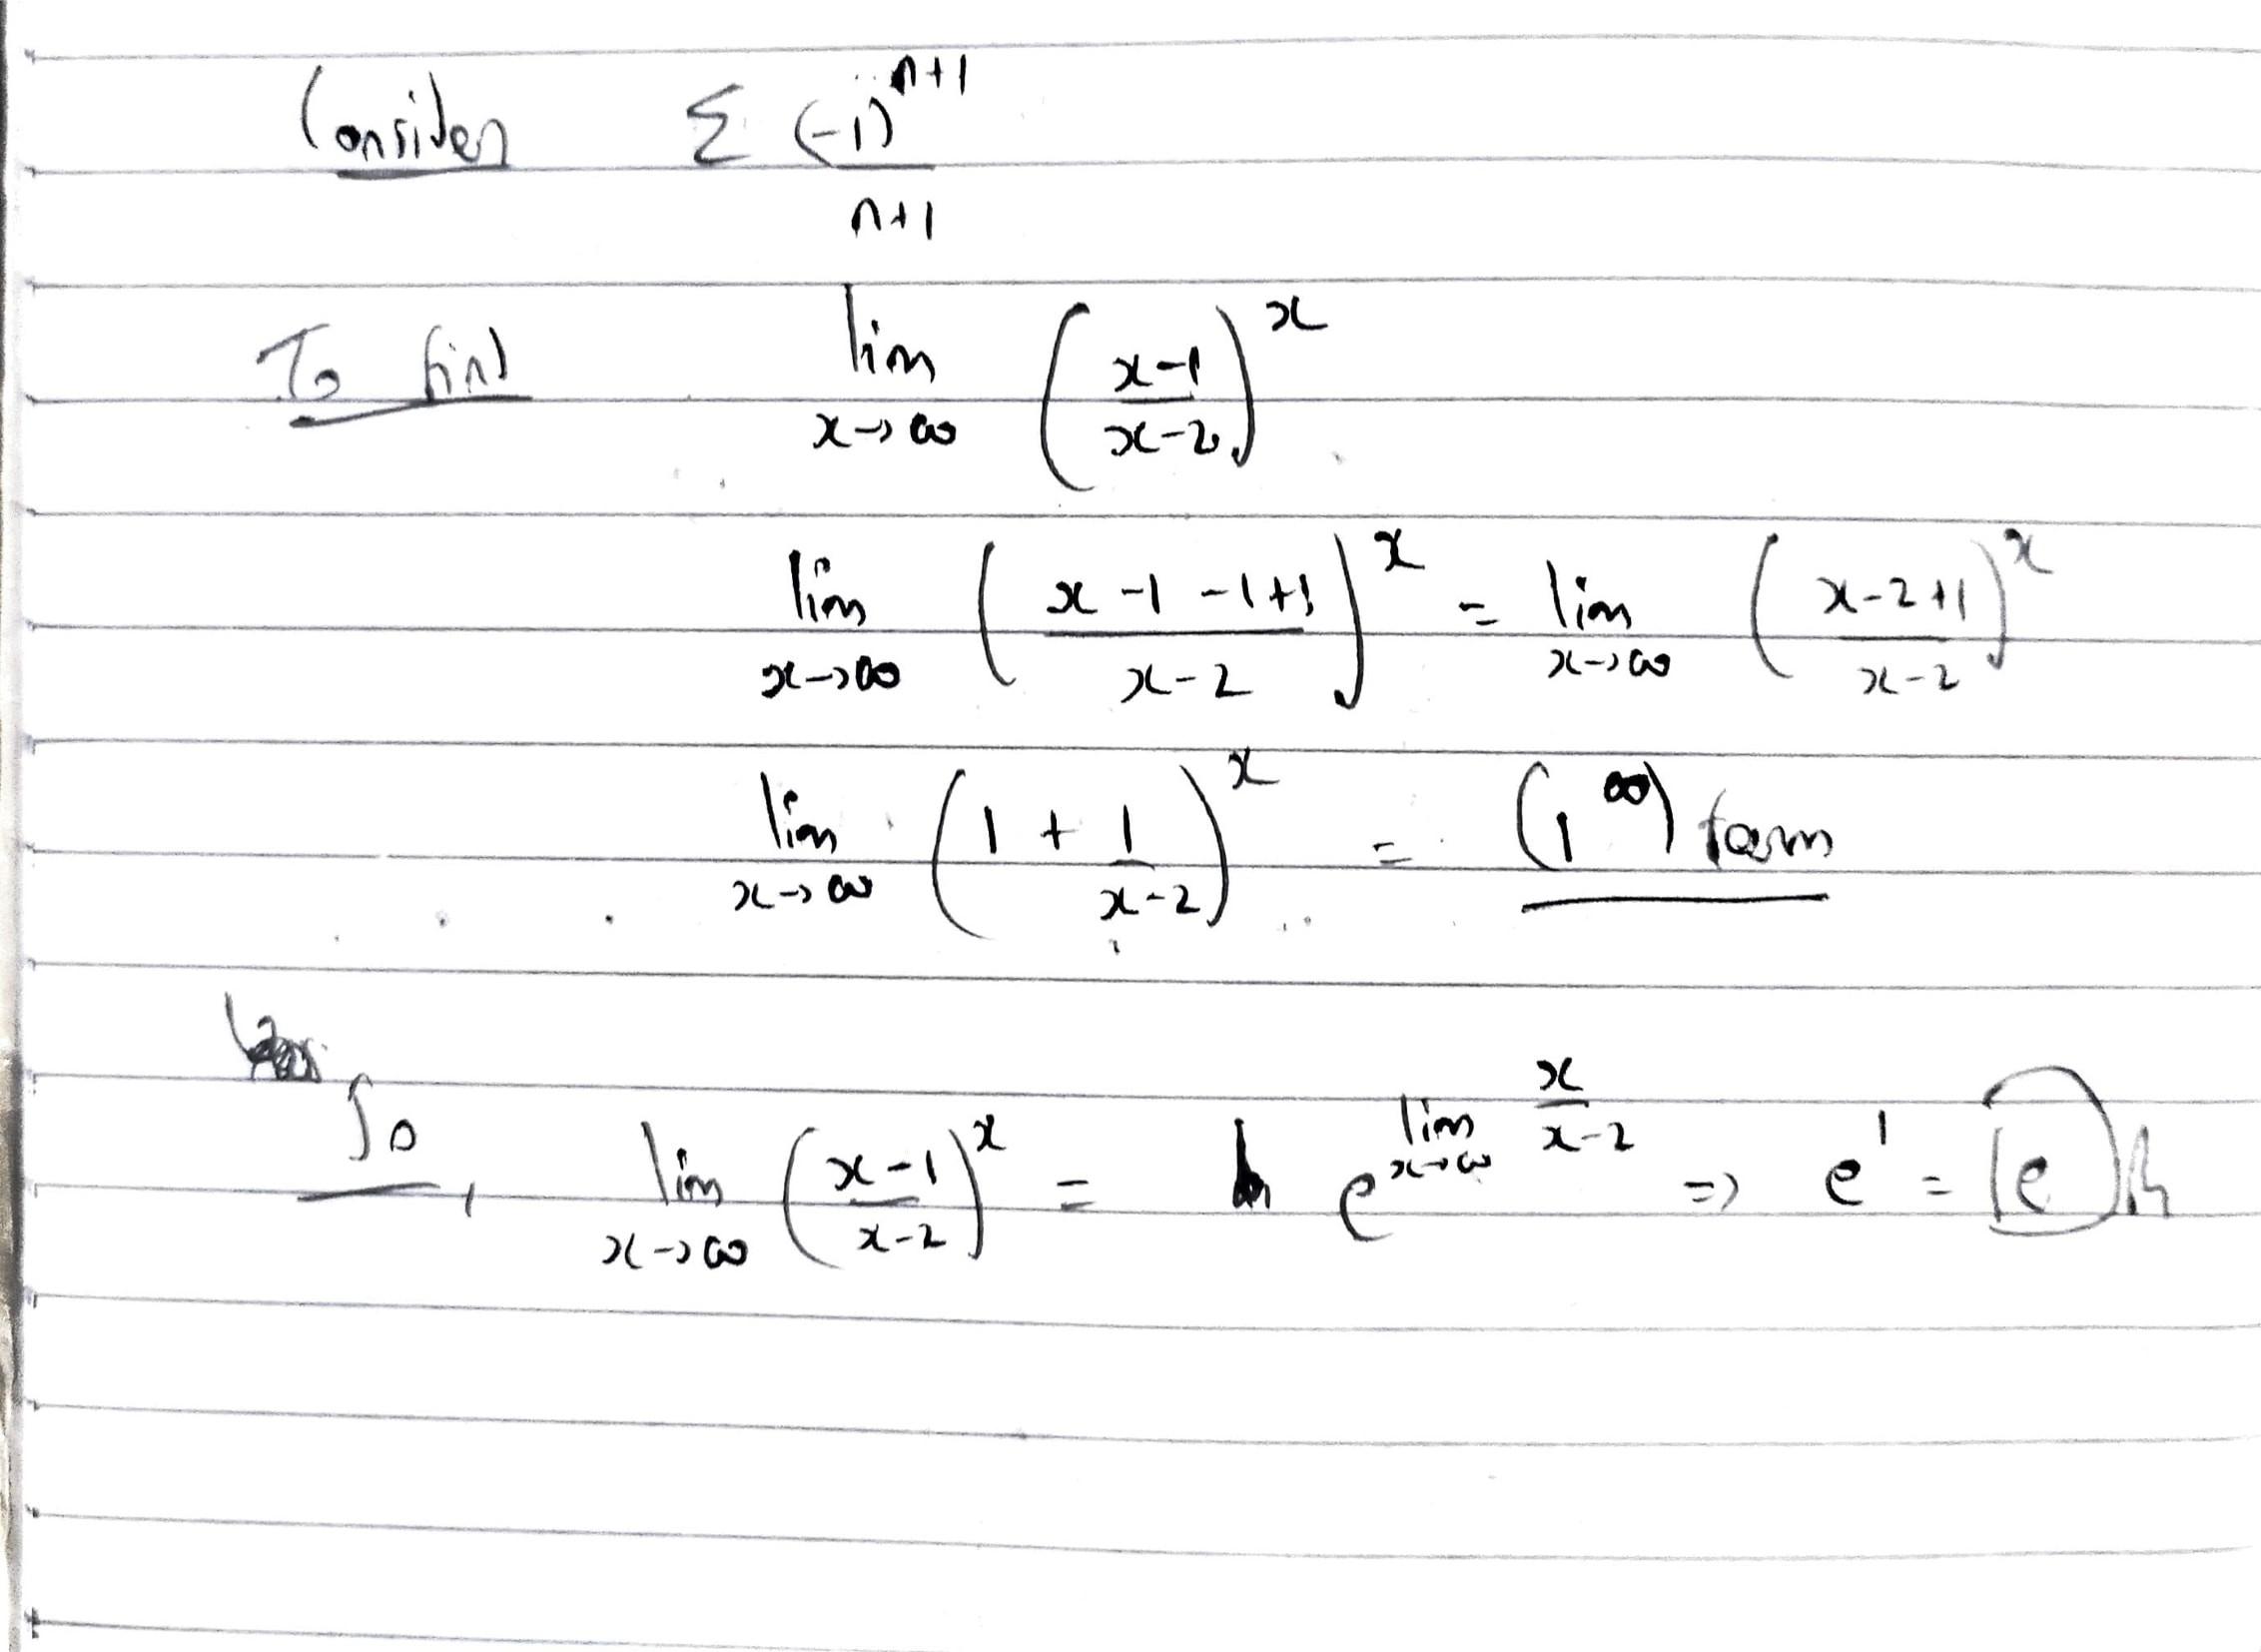 Consider Σ (-1)^{n+1} / n+1
To find lim x→∞ ( x-1 / x-2 )^x
lim x→∞ ( x-1-1+1 / x-2 )^x = lim x→∞ ( x-2+1 / x-2 )^x
lim x→∞ ( 1 + 1 / x-2 )^x = (1^∞) form
So, lim x→∞ ( x-1 / x-2 )^x = e^{lim x→∞ x / x-2} ⇒ e^1 = e